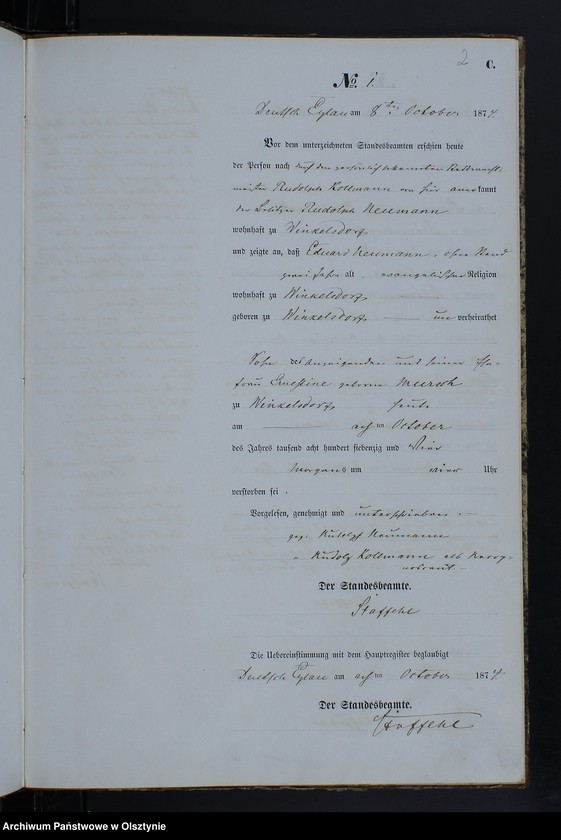 2
C.
No. 1.
Deutsch Eylau am 8ten October 1874.
Vor dem unterzeichneten Standesbeamten erschien heute
der Person nach durch den persönlich bekannten
Rudolph Kollmann von hier anerkannt
der Besitzer Rudolph Neumann
wohnhaft zu Winkelsdorf
und zeigte an, daß Eduard Neumann, ohne Stand
zwei Jahre alt, evangelischer Religion
wohnhaft zu Winkelsdorf
geboren zu Winkelsdorf unverheirathet
Sohn des Anzeigenden und seiner Ehe-
frau Ernestine geborne
zu Winkelsdorf heute
am achten October
des Jahres tausend acht hundert siebenzig und vier
Morgens um vier Uhr
verstorben sei.
Vorgelesen, genehmigt und unterschrieben.
gez. Rudolph Neumann
" Rudolph Kollmann als
Der Standesbeamte.
Staffehl
Die Uebereinstimmung mit dem Hauptregister beglaubigt
Deutsch Eylau am achten October 1874
Der Standesbeamte.
Staffehl
Archiwum Państwowe w Olsztynie